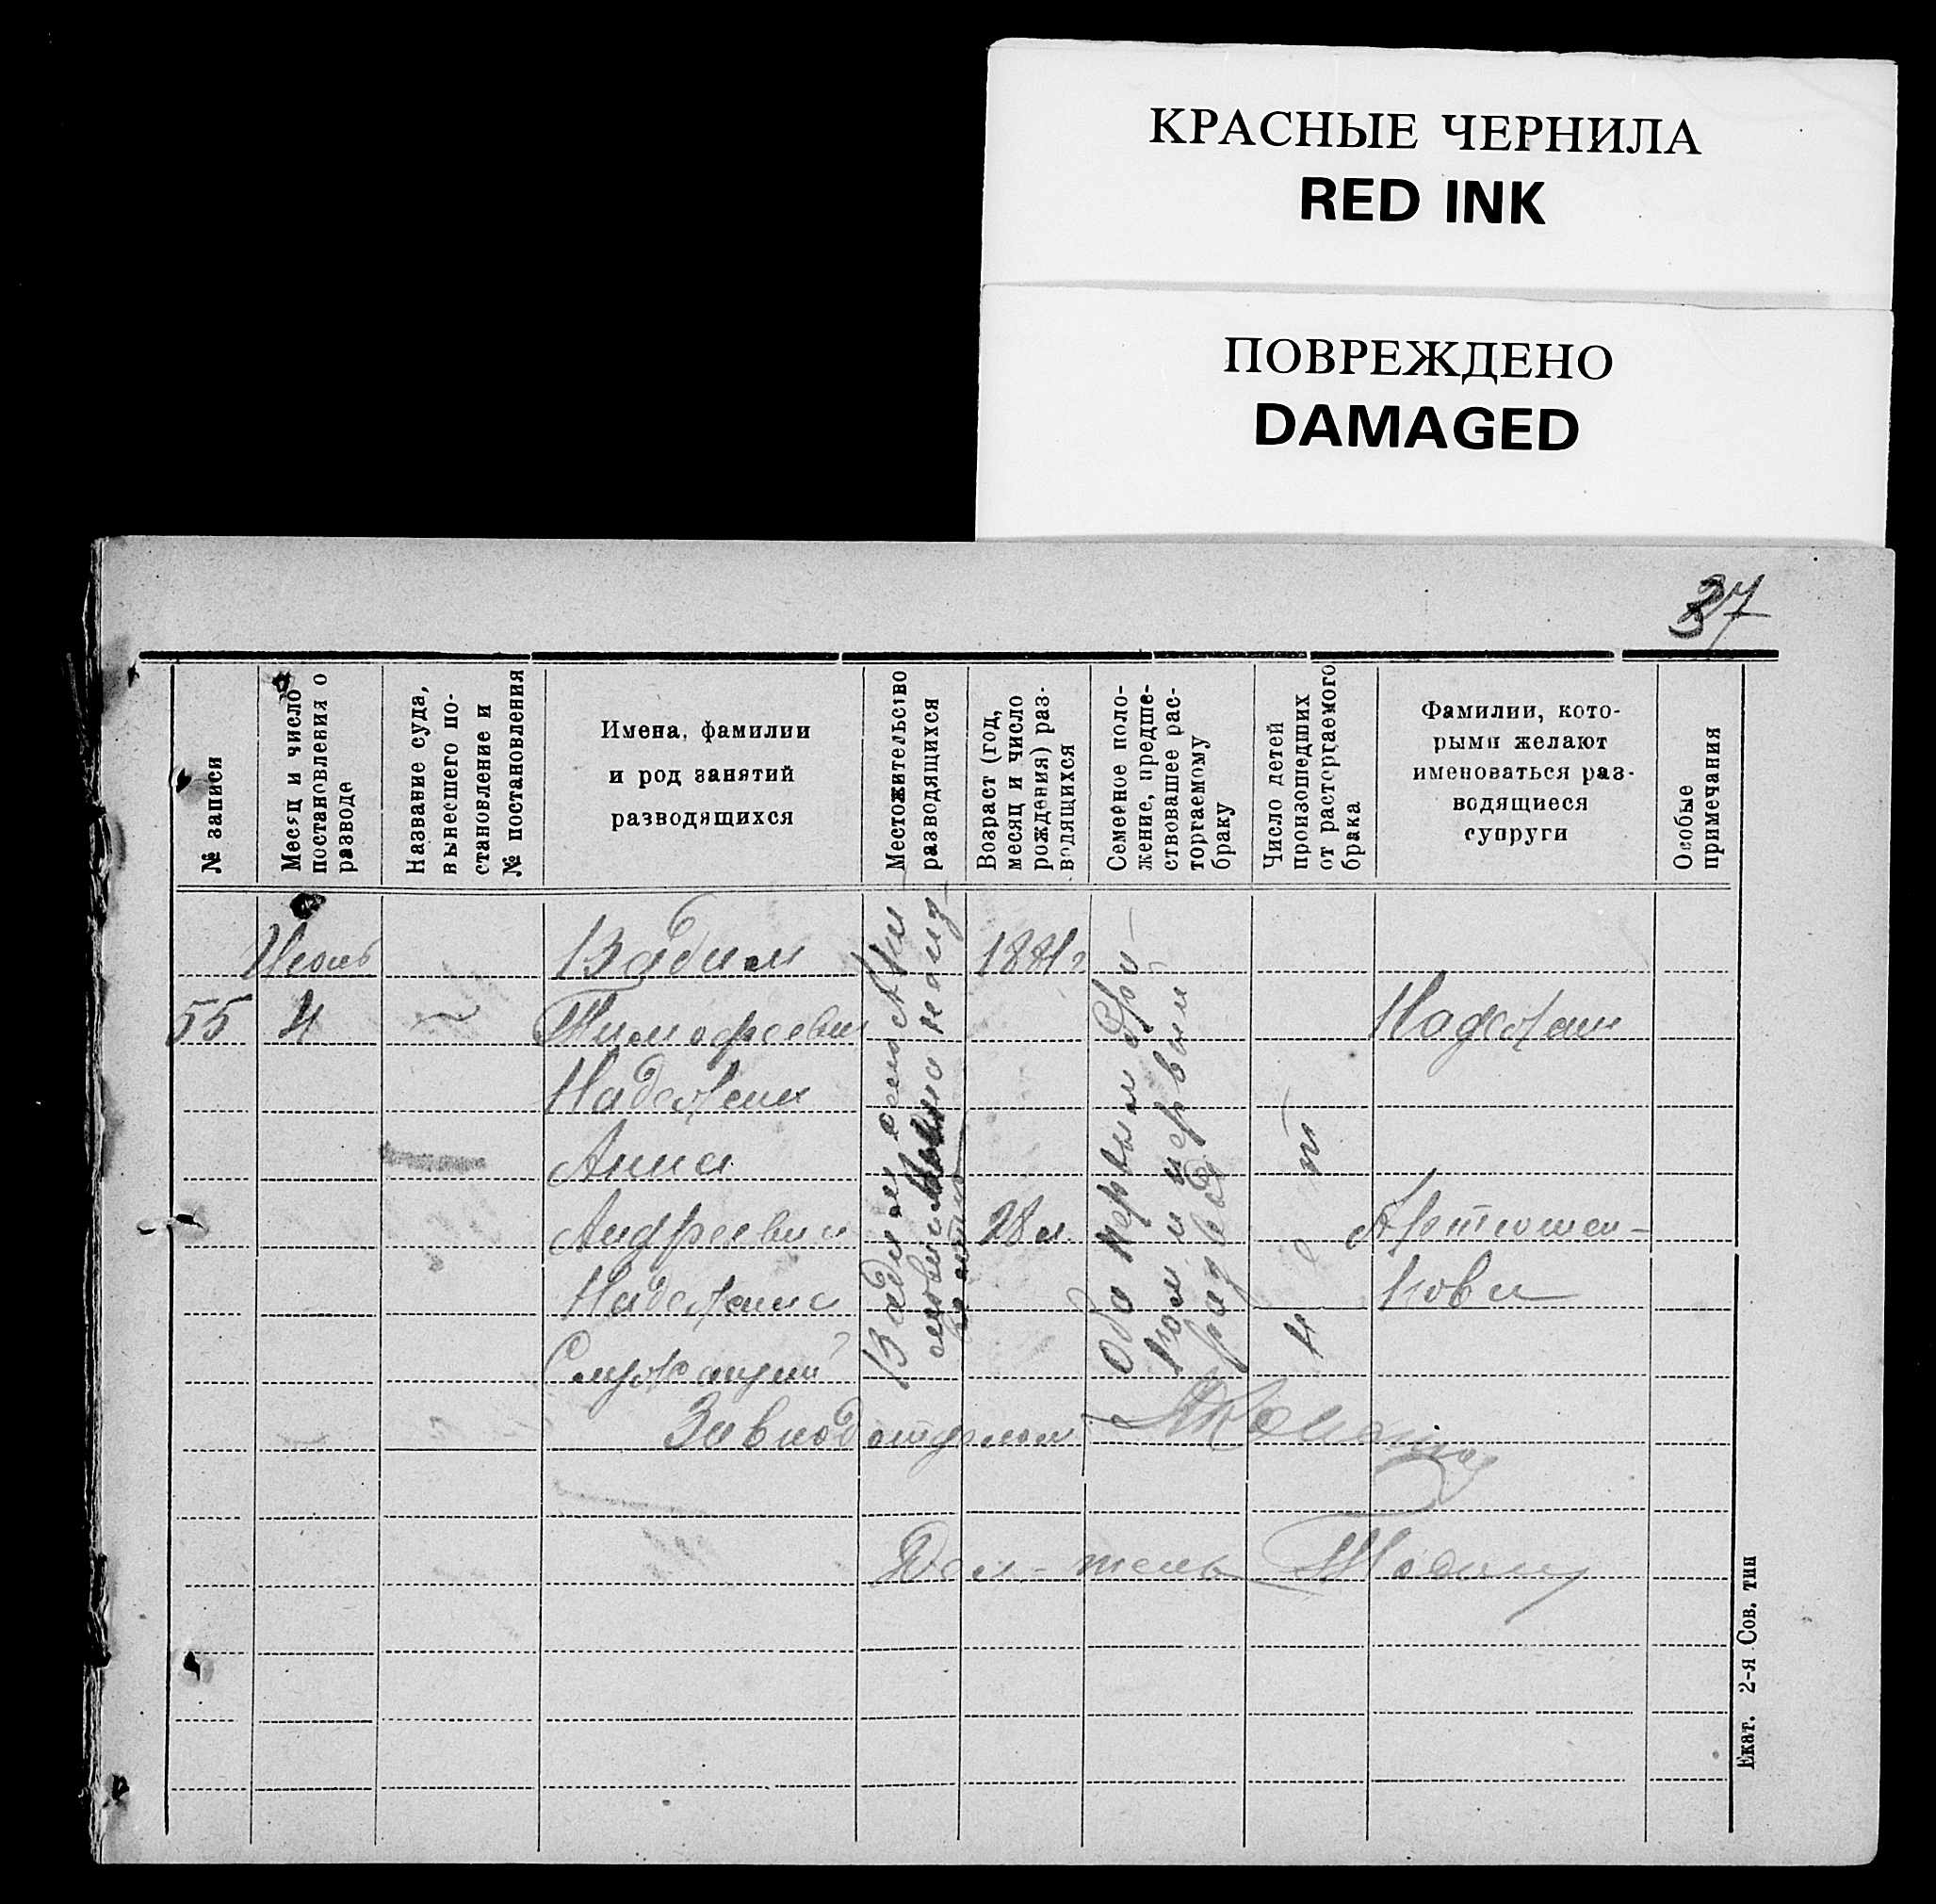 КРАСНЫЕ ЧЕРНИЛА
RED INK
ПОВРЕЖДЕНО
DAMAGED
37
№ записи
Месяц и число
постановления о
разводе
Название суда,
вынесшего по-
становление и
№ постановления
Имена, фамилии
и род занятий
разводящихся
Местожительство
разводящихся
Возраст (год,
месяц и число
рождения) раз-
водящихся
Семейное поло-
жение, предше-
ствовавшее рас-
торгаемому
браку
Число детей
произошедших
от расторгаемого
брака
Фамилии, кото-
рыми желают
именоваться раз-
водящиеся
супруги
Особые
примечания
55
Июнь
4
Вадим
Тимофеевич
Надежин
Анна
Андреевна
Надежина
Служащий
Вадим
1881 г
28 л.
Оба первым бра-
ком и первым
развод
нет
Надежин
Артюшен-
кова
Завподотделом
Дел-тель
Екат. 2-я Сов. тип